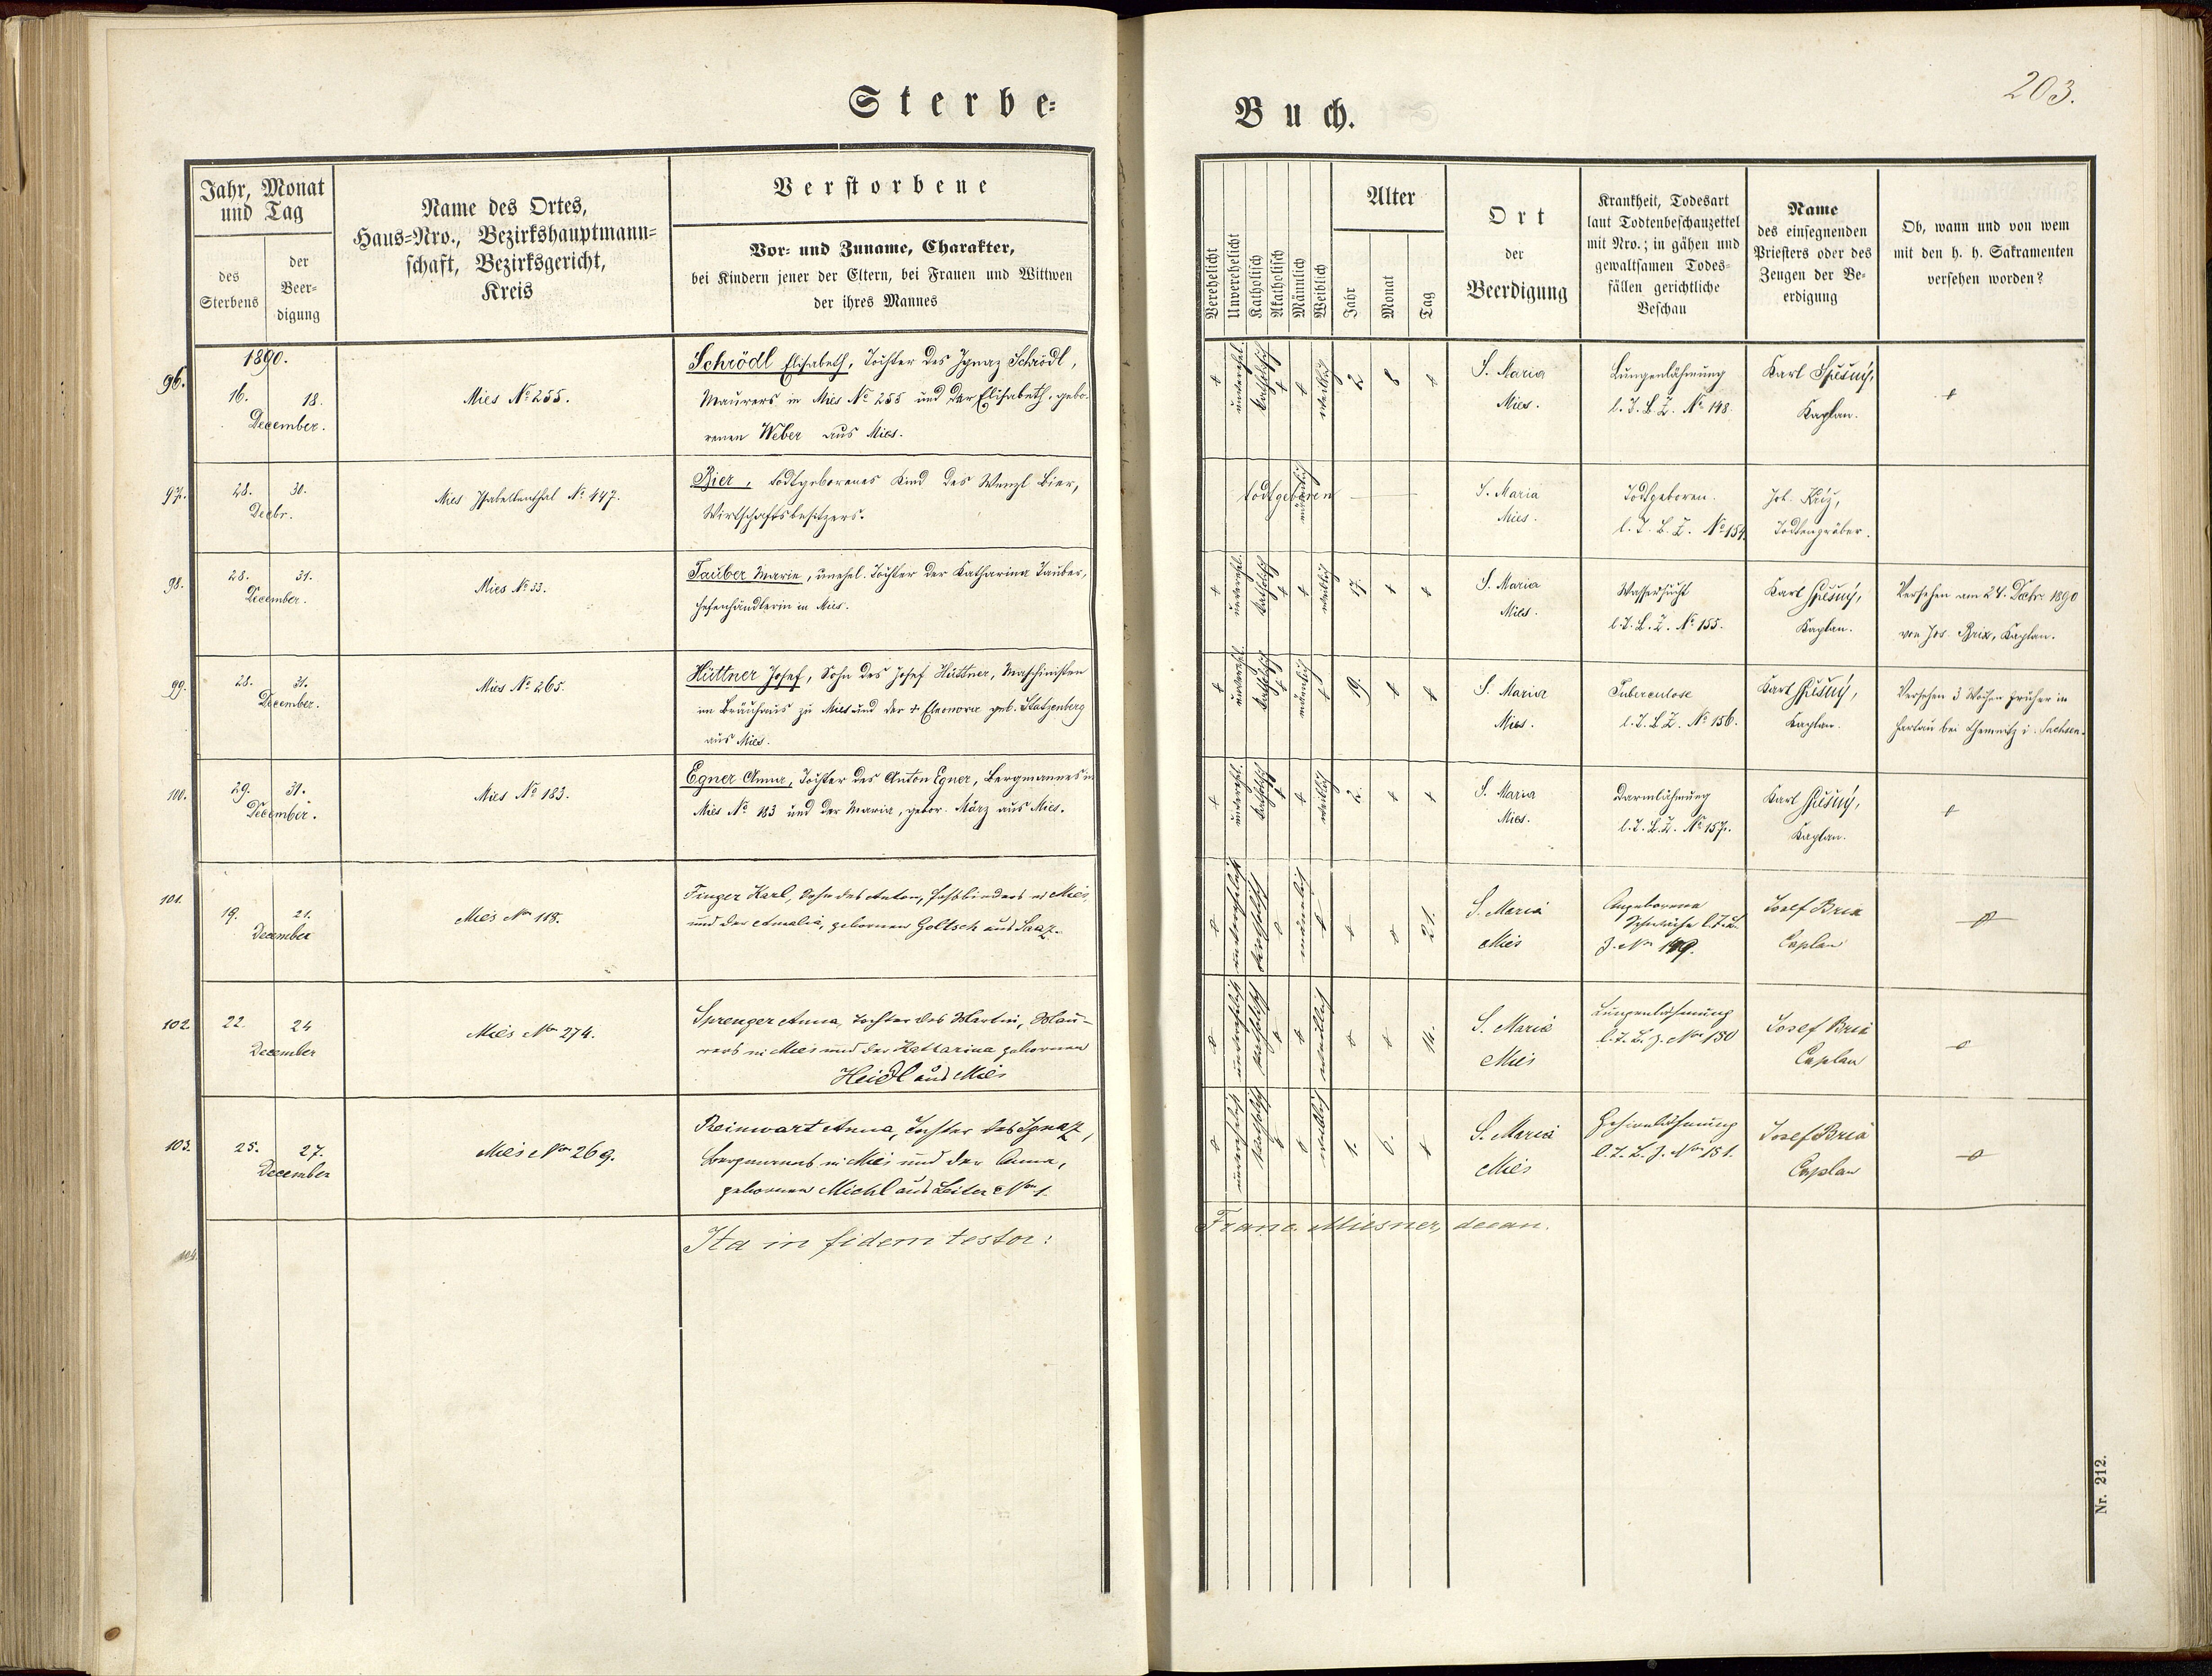 Sterbe=
Buch.
203.
Jahr, Monat
und Tag
des
Sterbens
der
Beer-
digung
Name des Ortes,
Haus=Nro., Bezirkshauptmann=
schaft, Bezirksgericht,
Kreis
Verstorbene
Vor- und Zuname, Charakter,
bei Kindern jener der Eltern, bei Frauen und Wittwen
der ihres Mannes
Verehelicht
Unverehelicht
Katholisch
Akatholisch
Männlich
Weiblich
Alter
Jahr
Monat
Tag
Ort
der
Beerdigung
Krankheit, Todesart
laut Todtenbeschauzettel
mit Nro.; in gähen und
gewaltsamen Todes=
fällen gerichtliche
Beschau
Name
des einsegnenden
Priesters oder des
Zeugen der Be-
erdigung
Ob, wann und von wem
mit den h. h. Sakramenten
versehen worden?
1890.
96.
16. 18.
December.
Mies No 255.
Schrödl Elisabeth, Tochter des Ignaz Schrödl,
Maurers in Mies No 255 und der Elisabeth, gebo-
renen Weber aus Mies.
+ unverehel. katholisch + + weiblich 2 8 +
S. Maria
Mies.
Lungenlähmung
l. T. B. Z. No 148.
Karl
Kaplan.
+
97.
28. 30.
Decbr.
Mies Isabellenthal No 447.
Bier, todtgeborenes Kind des Wenzl Bier,
Wirtschaftsbesitzers.
todtgeboren männlich
S. Maria
Mies.
Todtgeboren.
l. T. B. Z. No 154.
Joh.
Todtengräber.
98.
28. 31.
December.
Mies No 33.
Tauber Marie, unehel. Tochter der Katharina Tauber,
Hefenhändlerin in Mies.
+ unverehl. katholisch + + weiblich 17. + +
S. Maria
Mies.
Wassersucht
l. T. B. Z. No 155.
Karl
Kaplan.
Versehen am 24. Decbr. 1890
von Jos. Brix, Kaplan.
99.
28. 31.
December.
Mies No 265.
Hüttner Josef, Sohn des Josef Hüttner, Maschinisten
im Bräuhaus zu Mies und der + Eleonora geb. Statzenberg
aus Mies.
+ unverehl. katholisch + männlich + 19. + +
S. Maria
Mies.
Tuberculose
l. T. B. Z. No 156.
Karl
Kaplan.
Versehen 3 Wochen früher in
Hartau bei Chemnitz i. Sachsen.
100.
29. 31.
December.
Mies No 183.
Egner Anna, Tochter des Anton Egner, Bergmannes in
Mies No 183 und der Maria, gebor. März aus Mies.
+ unverehl. katholisch + + weiblich 2. + +
S. Maria
Mies.
Darmlähmung
l. T. B. Z. No 157.
Karl
Kaplan.
+
101.
19. 21.
December
Mies Nro 118.
Finger Karl, Sohn des Anton, Faßbinders in Mies,
und der Amalia, gebornen Goltsch aus Saaz.
unverehelicht katholisch männlich 21.
S. Maria
Mies
Angeborene
Schwäche l. T. B.
Z. Nro 149.
Josef Brix
Caplan
102.
22. 24
December
Mies Nro 274.
Sprenger Anna, Tochter des Martin, Mau-
rers in Mies und der Katharina gebornen
Heidl aus Mies
unverehelicht katholisch weiblich 14.
S. Maria
Mies
Lungenlähmung
l. T. B. Z. Nro 150
Josef Brix
Caplan
103.
25. 27.
December
Mies Nro 269.
Reinwart Anna, Tochter des Ignaz,
Bergmanns in Mies und der Anna,
gebornen Michl aus Leiter Nro 1.
unverehelicht katholisch weiblich 1. 6.
S. Maria
Mies
Gehirnlähmung
l. T. B. Z. Nro 151.
Josef Brix
Caplan
104.
Ita in fidem testor:
Franc. Miesner, decan.
Nr. 212.